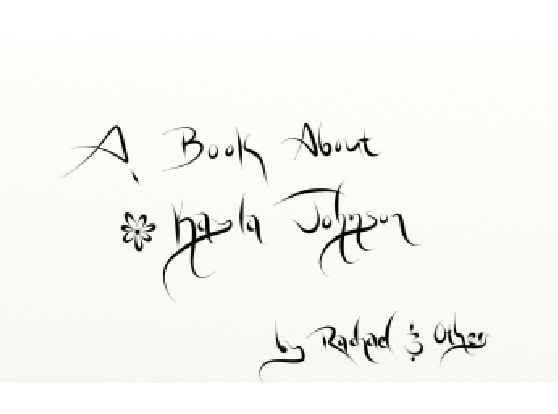 A Book About
Kayla Johnson
by Rachael & Other